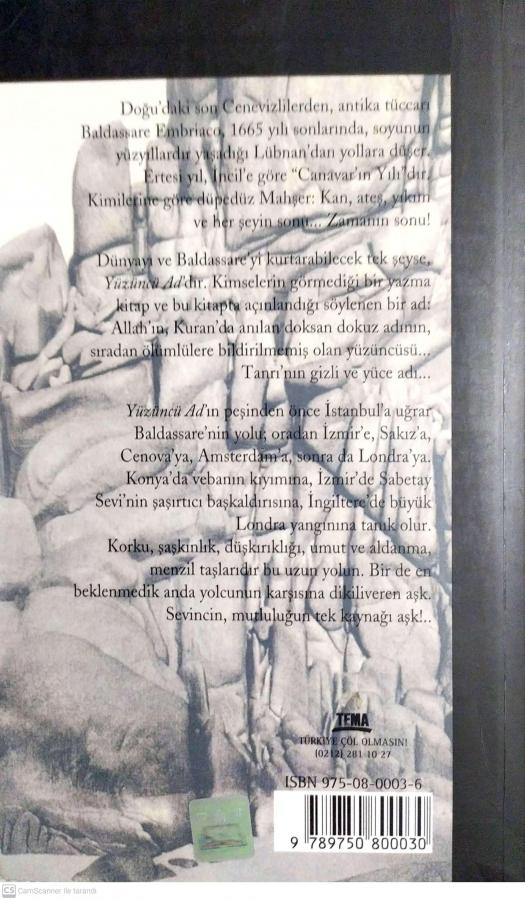 Doğu'daki son Cenevizlilerden, antika tüccarı
Baldassare Embriaco, 1665 yılı sonlarında, soyunun
yüzyıllardır yaşadığı Lübnan'dan yollara düşer.
Ertesi yıl, İncil'e göre "Canavar'ın Yılı"dır.
Kimilerine göre düpedüz Mahşer: Kan, ateş, yıkım
ve her şeyin sonu... Zamanın sonu!
Dünyayı ve Baldassare'yi kurtarabilecek tek şeyse,
Yüzüncü Ad'dır. Kimselerin görmediği bir yazma
kitap ve bu kitapta açınlandığı söylenen bir ad:
Allah'ın, Kuran'da anılan doksan dokuz adının,
sıradan ölümlülere bildirilmemiş olan yüzüncüsü...
Tanrı'nın gizli ve yüce adı...
Yüzüncü Ad'ın peşinden önce İstanbul'a uğrar
Baldassare'nin yolu; oradan İzmir'e, Sakız'a,
Cenova'ya, Amsterdam'a, sonra da Londra'ya.
Konya'da vebanın kıyımına, İzmir'de Sabetay
Sevi'nin şaşırtıcı başkaldırısına, İngiltere'de büyük
Londra yangınına tanık olur.
Korku, şaşkınlık, düşkırıklığı, umut ve aldanma,
menzil taşlarıdır bu uzun yolun. Bir de en
beklenmedik anda yolcunun karşısına dikiliveren aşk.
Sevincin, mutluluğun tek kaynağı aşk!..
TEMA
TÜRKİYE ÇÖL OLMASIN!
(0212) 281 10 27
ISBN 975-08-0003-6
9 789750 800030
CS CamScanner ile tarandı